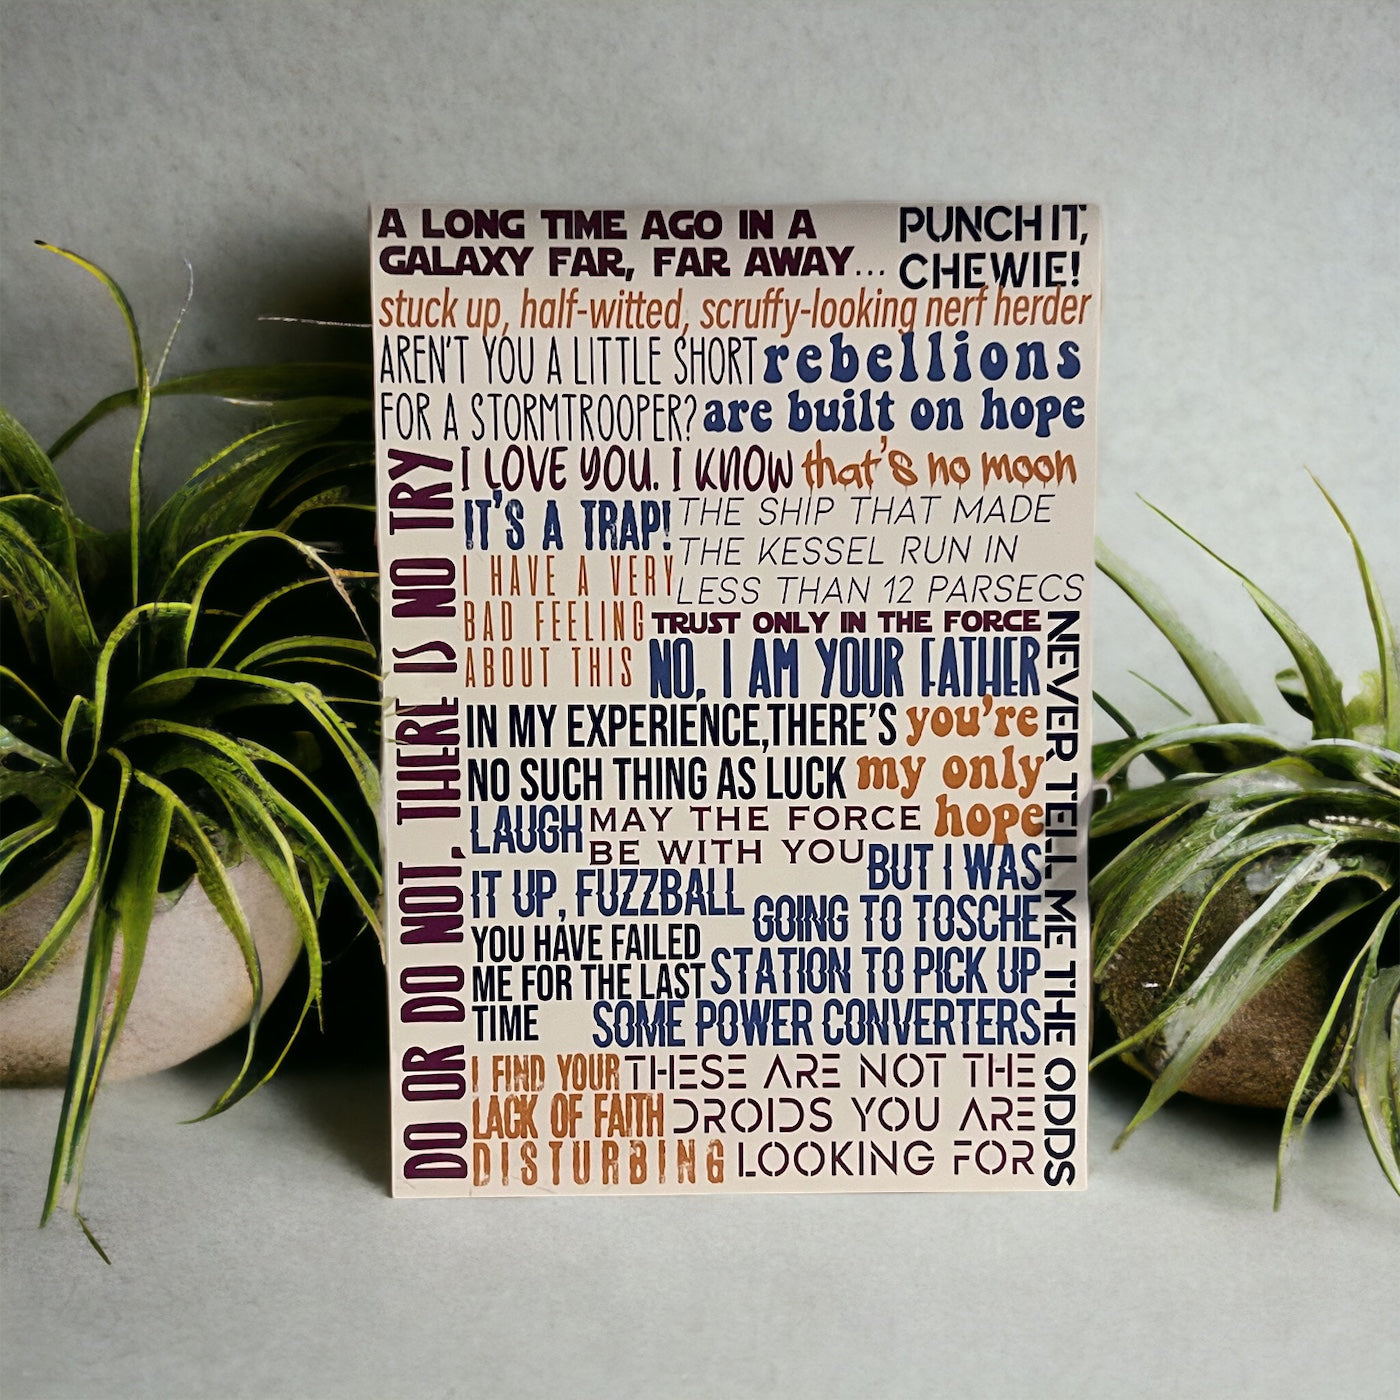 A LONG TIME AGO IN A
GALAXY FAR, FAR AWAY...
PUNCH IT,
CHEWIE!
stuck up, half-witted, scruffy-looking nerf herder
AREN'T YOU A LITTLE SHORT
FOR A STORMTROOPER?
rebellions
are built on hope
DO OR DO NOT, THERE IS NO TRY
I LOVE YOU. I KNOW
that's no moon
IT'S A TRAP!
THE SHIP THAT MADE
THE KESSEL RUN IN
LESS THAN 12 PARSECS
I HAVE A VERY
BAD FEELING
ABOUT THIS
TRUST ONLY IN THE FORCE
NEVER TELL ME THE ODDS
NO, I AM YOUR FATHER
IN MY EXPERIENCE,THERE'S
NO SUCH THING AS LUCK
you're
my only
hope
LAUGH
IT UP, FUZZBALL
MAY THE FORCE
BE WITH YOU
BUT I WAS
GOING TO TOSCHE
STATION TO PICK UP
SOME POWER CONVERTERS
YOU HAVE FAILED
ME FOR THE LAST
TIME
I FIND YOUR
LACK OF FAITH
DISTURBING
THESE ARE NOT THE
DROIDS YOU ARE
LOOKING FOR